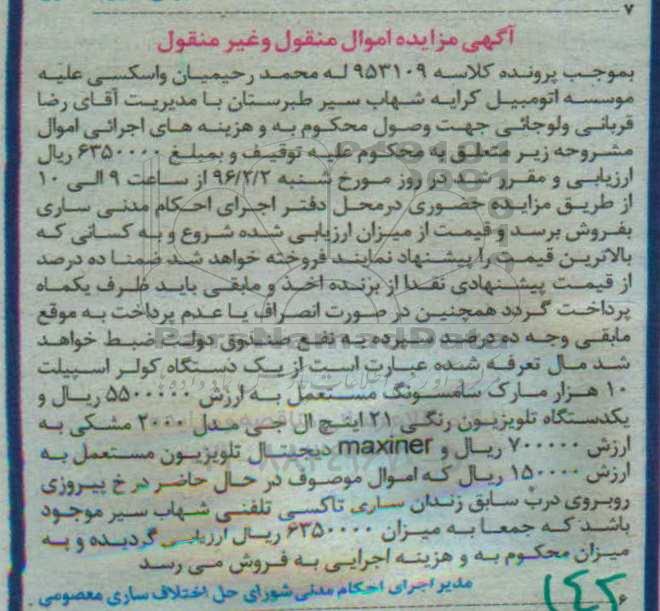 ۷
آگهی مزایده اموال منقول وغیر منقول
بموجب پرونده کلاسه ۹۵۳۱۰۹ له محمد رحیمیان واسکسی علیه
موسسه اتومبیل کرایه شهاب سیر طبرستان با مدیریت آقای رضا
قربانی ولوجائی جهت وصول محکوم به و هزینه های اجرائی اموال
مشروحه زیر متعلق به محکوم علیه توقیف و بمبلغ ۶۳۵۰۰۰۰ ریال
ارزیابی و مقرر شد در روز مورخ شنبه ۹۶/۲/۲ از ساعت ۹ الی ۱۰
از طریق مزایده حضوری درمحل دفتر اجرای احکام مدنی ساری
بفروش برسد و قیمت از میزان ارزیابی شده شروع و به کسانی که
بالاترین قیمت را پیشنهاد نمایند فروخته خواهد شد ضمنا ده درصد
از قیمت پیشنهادی نقدا از برنده اخذ و مابقی باید ظرف یکماه
پرداخت گردد همچنین در صورت انصراف یا عدم پرداخت به موقع
مابقی وجه ده درصد سپرده به نفع صندوق دولت ضبط خواهد
شد مال تعرفه شده عبارت است از یک دستگاه کولر اسپیلت
۱۰ هزار مارک سامسونگ مستعمل به ارزش ۵۵۰۰۰۰۰ ریال و
یکدستگاه تلویزیون رنگی ۲۱ اینچ ال جی مدل ۲۰۰۰ مشکی به
ارزش ۷۰۰۰۰۰ ریال و maxiner دیجیتال تلویزیون مستعمل به
ارزش ۱۵۰۰۰۰ ریال که اموال موصوف در حال حاضر در خ پیروزی
روبروی درب سابق زندان ساری تاکسی تلفنی شهاب سیر موجود
باشد که جمعا به میزان ۶۳۵۰۰۰۰ ریال ارزیابی گردیده و به
میزان محکوم به و هزینه اجرایی به فروش می رسد
مدیر اجرای احکام مدنی شورای حل اختلاف ساری معصومی
۶
ParsNamadData